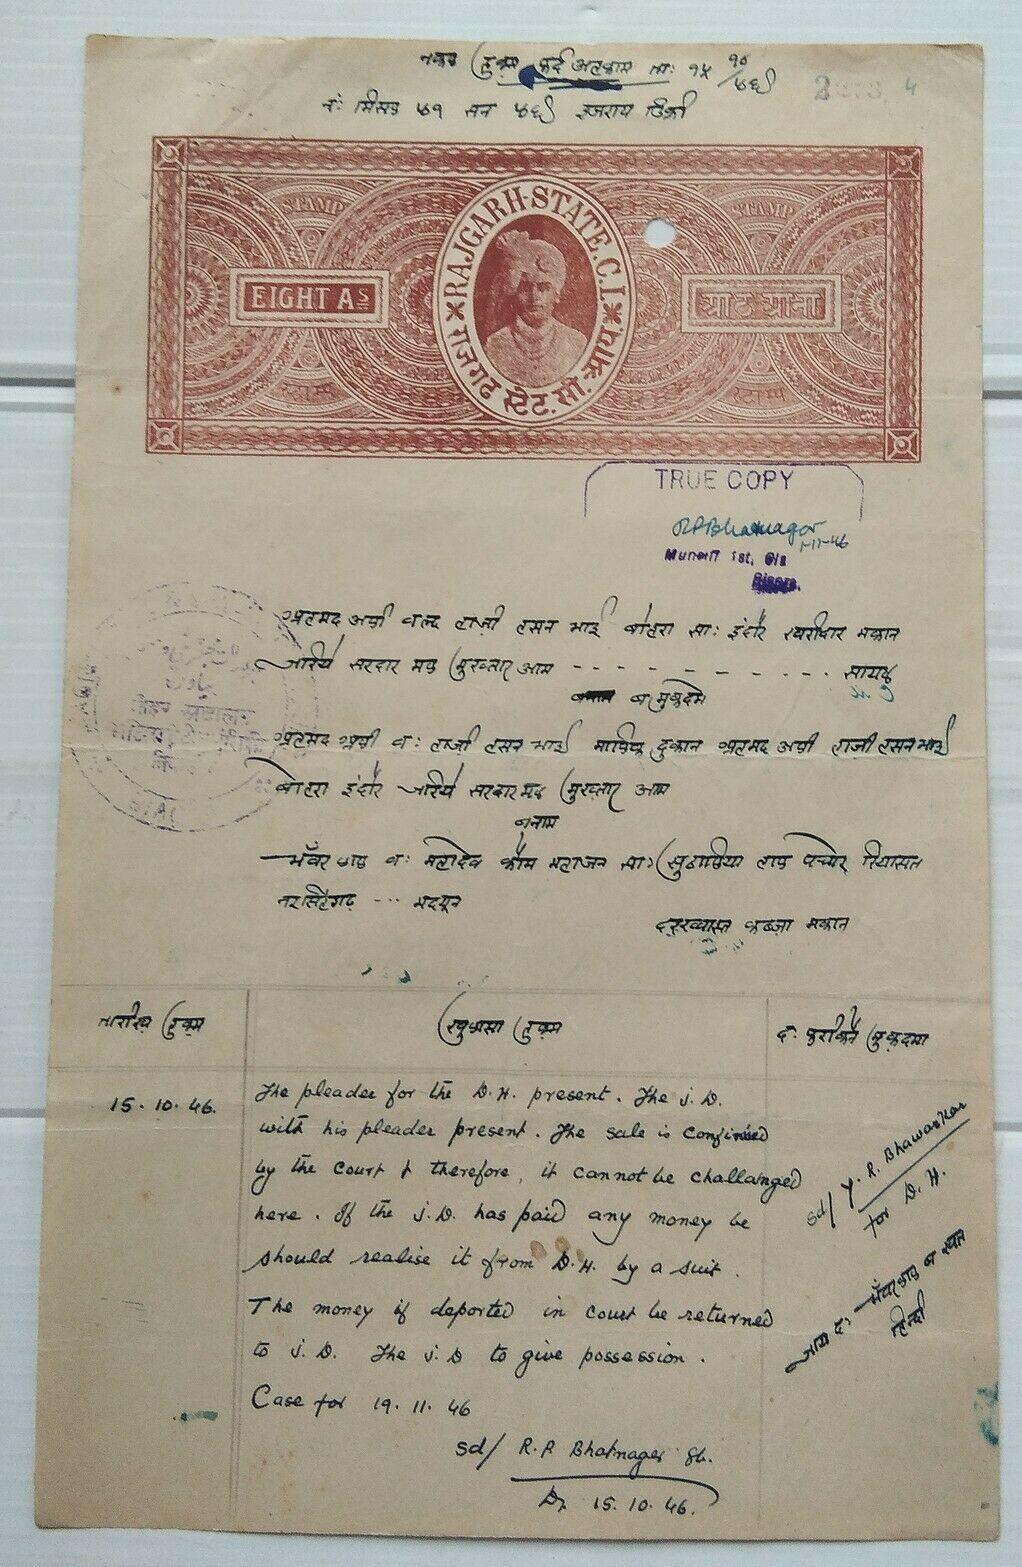 नकल हुक्म अहकाम ता: १५ १०/४६ई
नं: मिसल ७१ सन ४६ई इजराय डिक्री
STAMP STAMP
RAJGARH-STATE.C.I
EIGHT As
आठ आना
राजगढ स्टेट. सी. आय
स्टाम्प
TRUE COPY
RPBhatnagar
1-11-46
Munsiff 1st. Cls
Biaora.
अहमद अली वल्द हाजी हसन भाई बोहरा सा: इंदौर खरीदार मकान
जरिये सरदार मल मुख्तार आम - - - - - - - - - सायल
ब मुकदमे
अहमद अली व: हाजी हसन भाई मालिक दुकान अहमद अली हाजी हसन भाई
बोहरा इंदौर जरिये सरदार मल मुख्तार आम
बनाम
भँवर लाल व: महादेव कौम महाजन सा: सुठालिया हाल पचोर रियासत
नरसिंहगढ --- मदयून
दरख्वास्त कब्ज़ा मकान
तारीख हुक्म
खुलासा हुक्म
द: फरीकैन मुकदमा
15. 10. 46.
The pleader for the D.H. present. The J.D.
with his pleader present. The sale is confirmed
by the court & therefore, it cannot be challanged
here. If the J.D. has paid any money he
should realise it from D.H. by a suit.
The money if deported in court be returned
to J.D. The J.D to give possession.
Case for 19. 11. 46
sd/ R.P. Bhatnager
15. 10. 46.
sd/ Y. R. Bhawarkar
for D. H.
द: भँवरलाल ब खत
हिन्दी